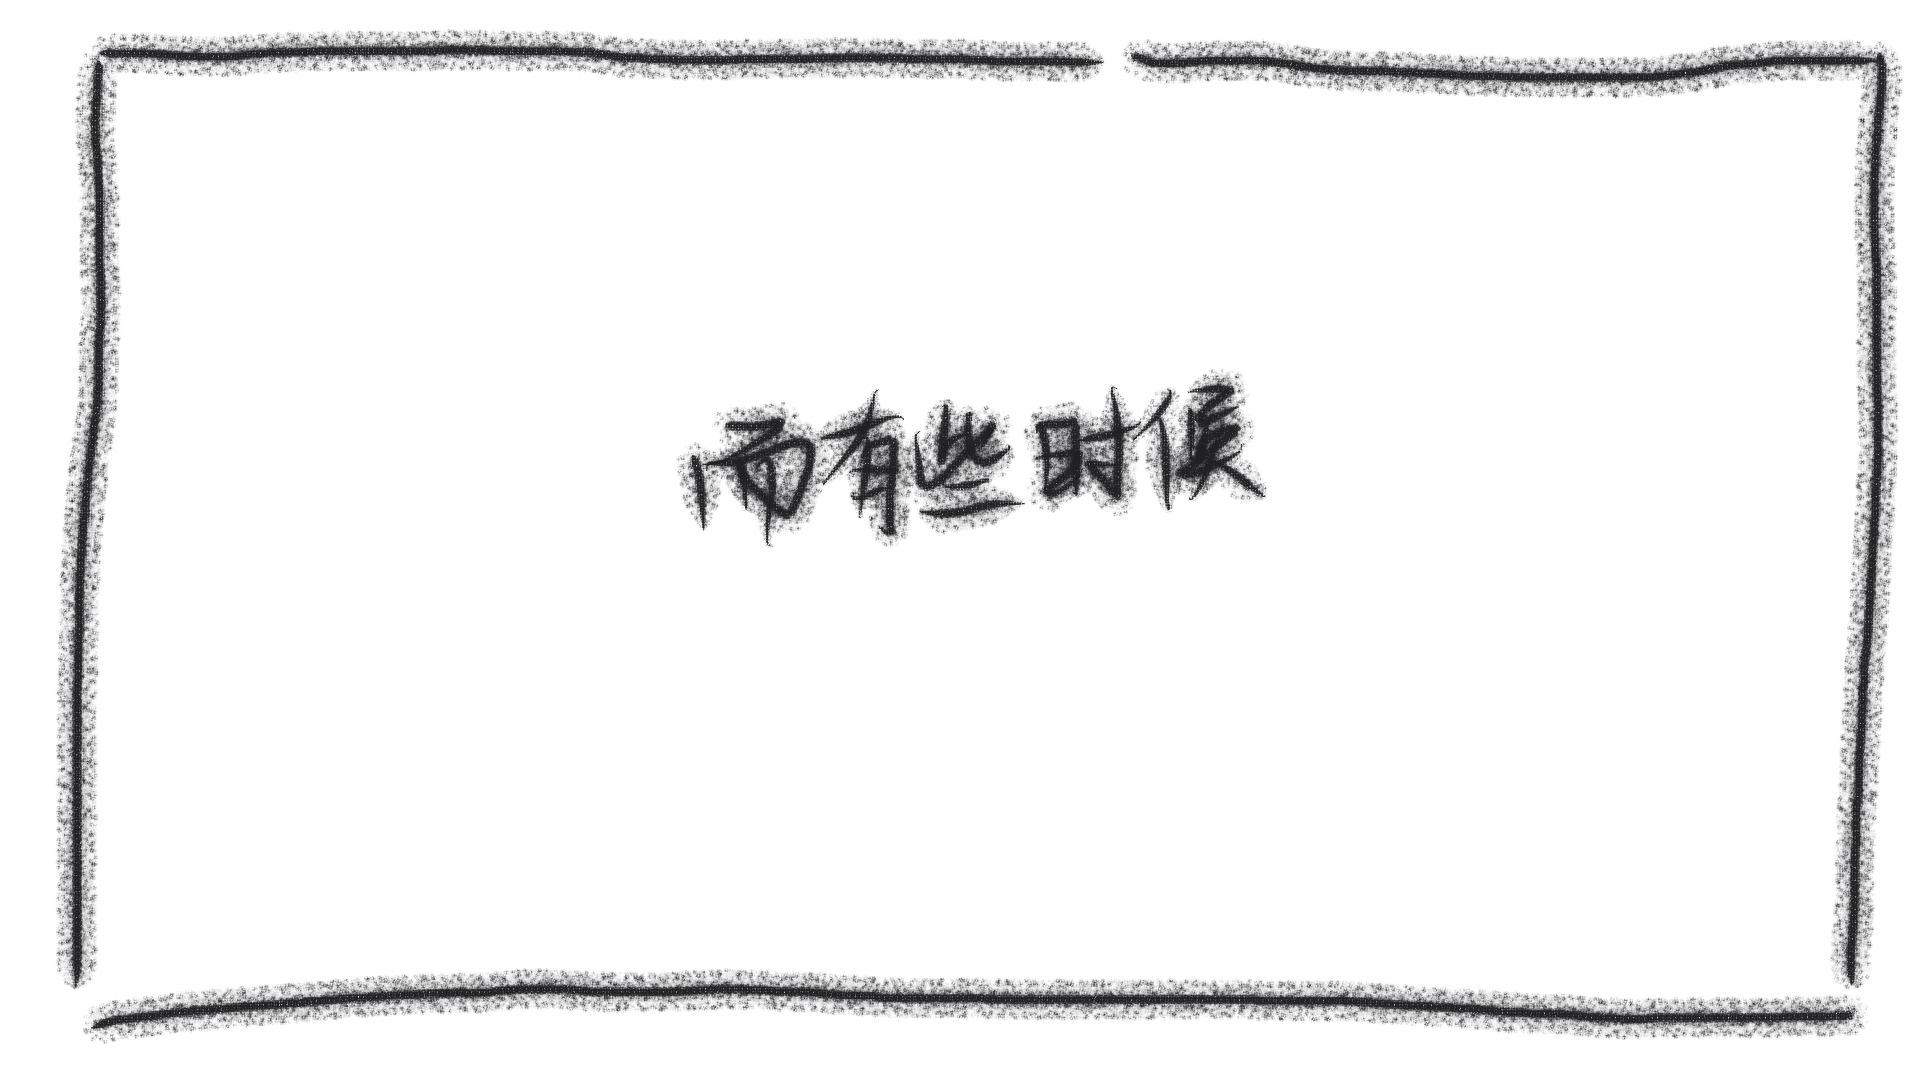 而有些时候